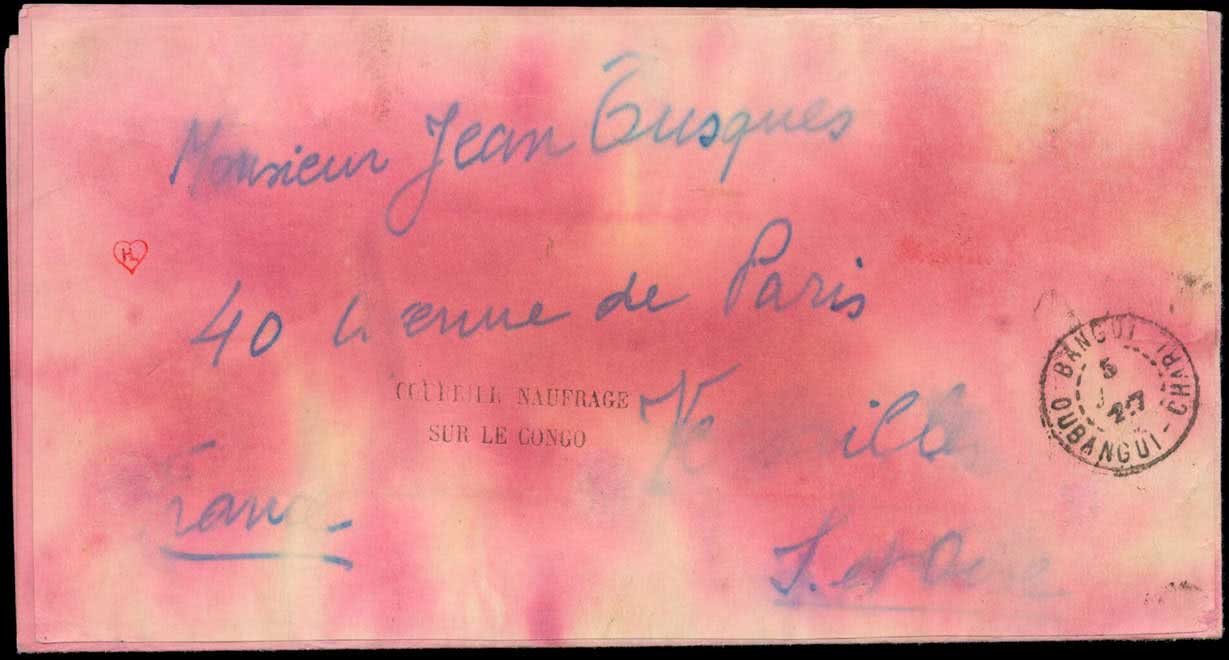 Monsieur Jean
40 avenue de Paris
COURRIER NAUFRAGE
SUR LE CONGO
Versailles
France
S. et Oise
HL
BANGUI
5
27
OUBANGUI-CHARI